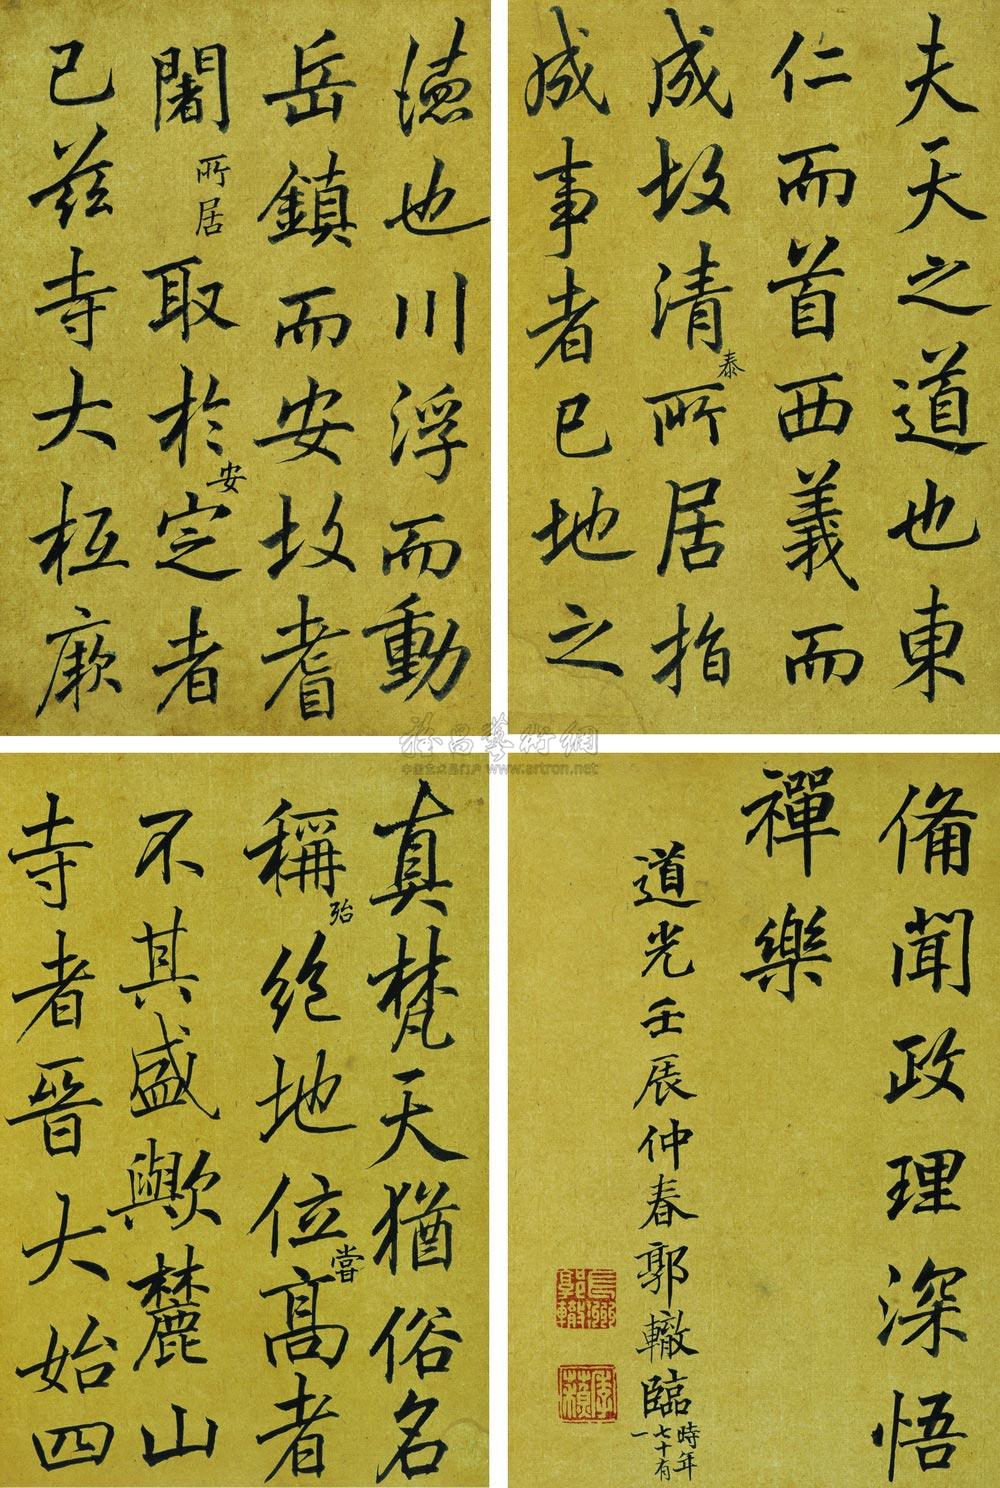 夫天之道也東
仁而首西義而
成故清泰所居指
成事者已地之
徳也川浮而動
岳鎮而安故耆
闍所居取於安定者
已茲寺大柢厥
真梵天猶俗名
稱殆絶地位嘗高者
不其盛歟麓山
寺者晉大始四
備聞政理深悟
禪樂
道光壬辰仲春郭轍臨時年七十有一
雅昌藝術網
中国艺术品门户 www.artron.net